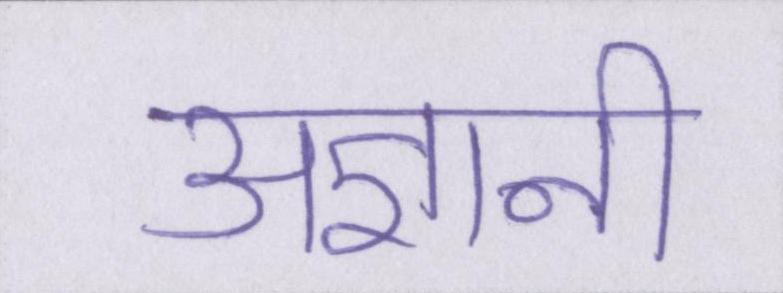 अज्ञानी